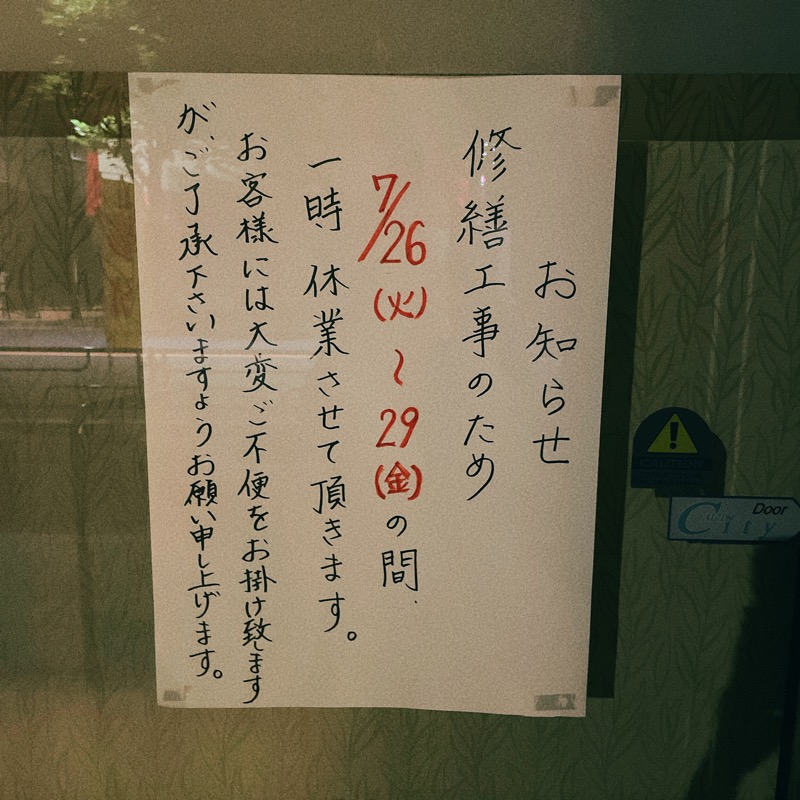 お知らせ
修繕工事のため
7/26(火)〜29(金)の間
一時、休業させて頂きます。
お客様には大変ご不便をお掛け致します
が、ご了承下さいますようお願い申し上げます。
CAUTION
Door
City